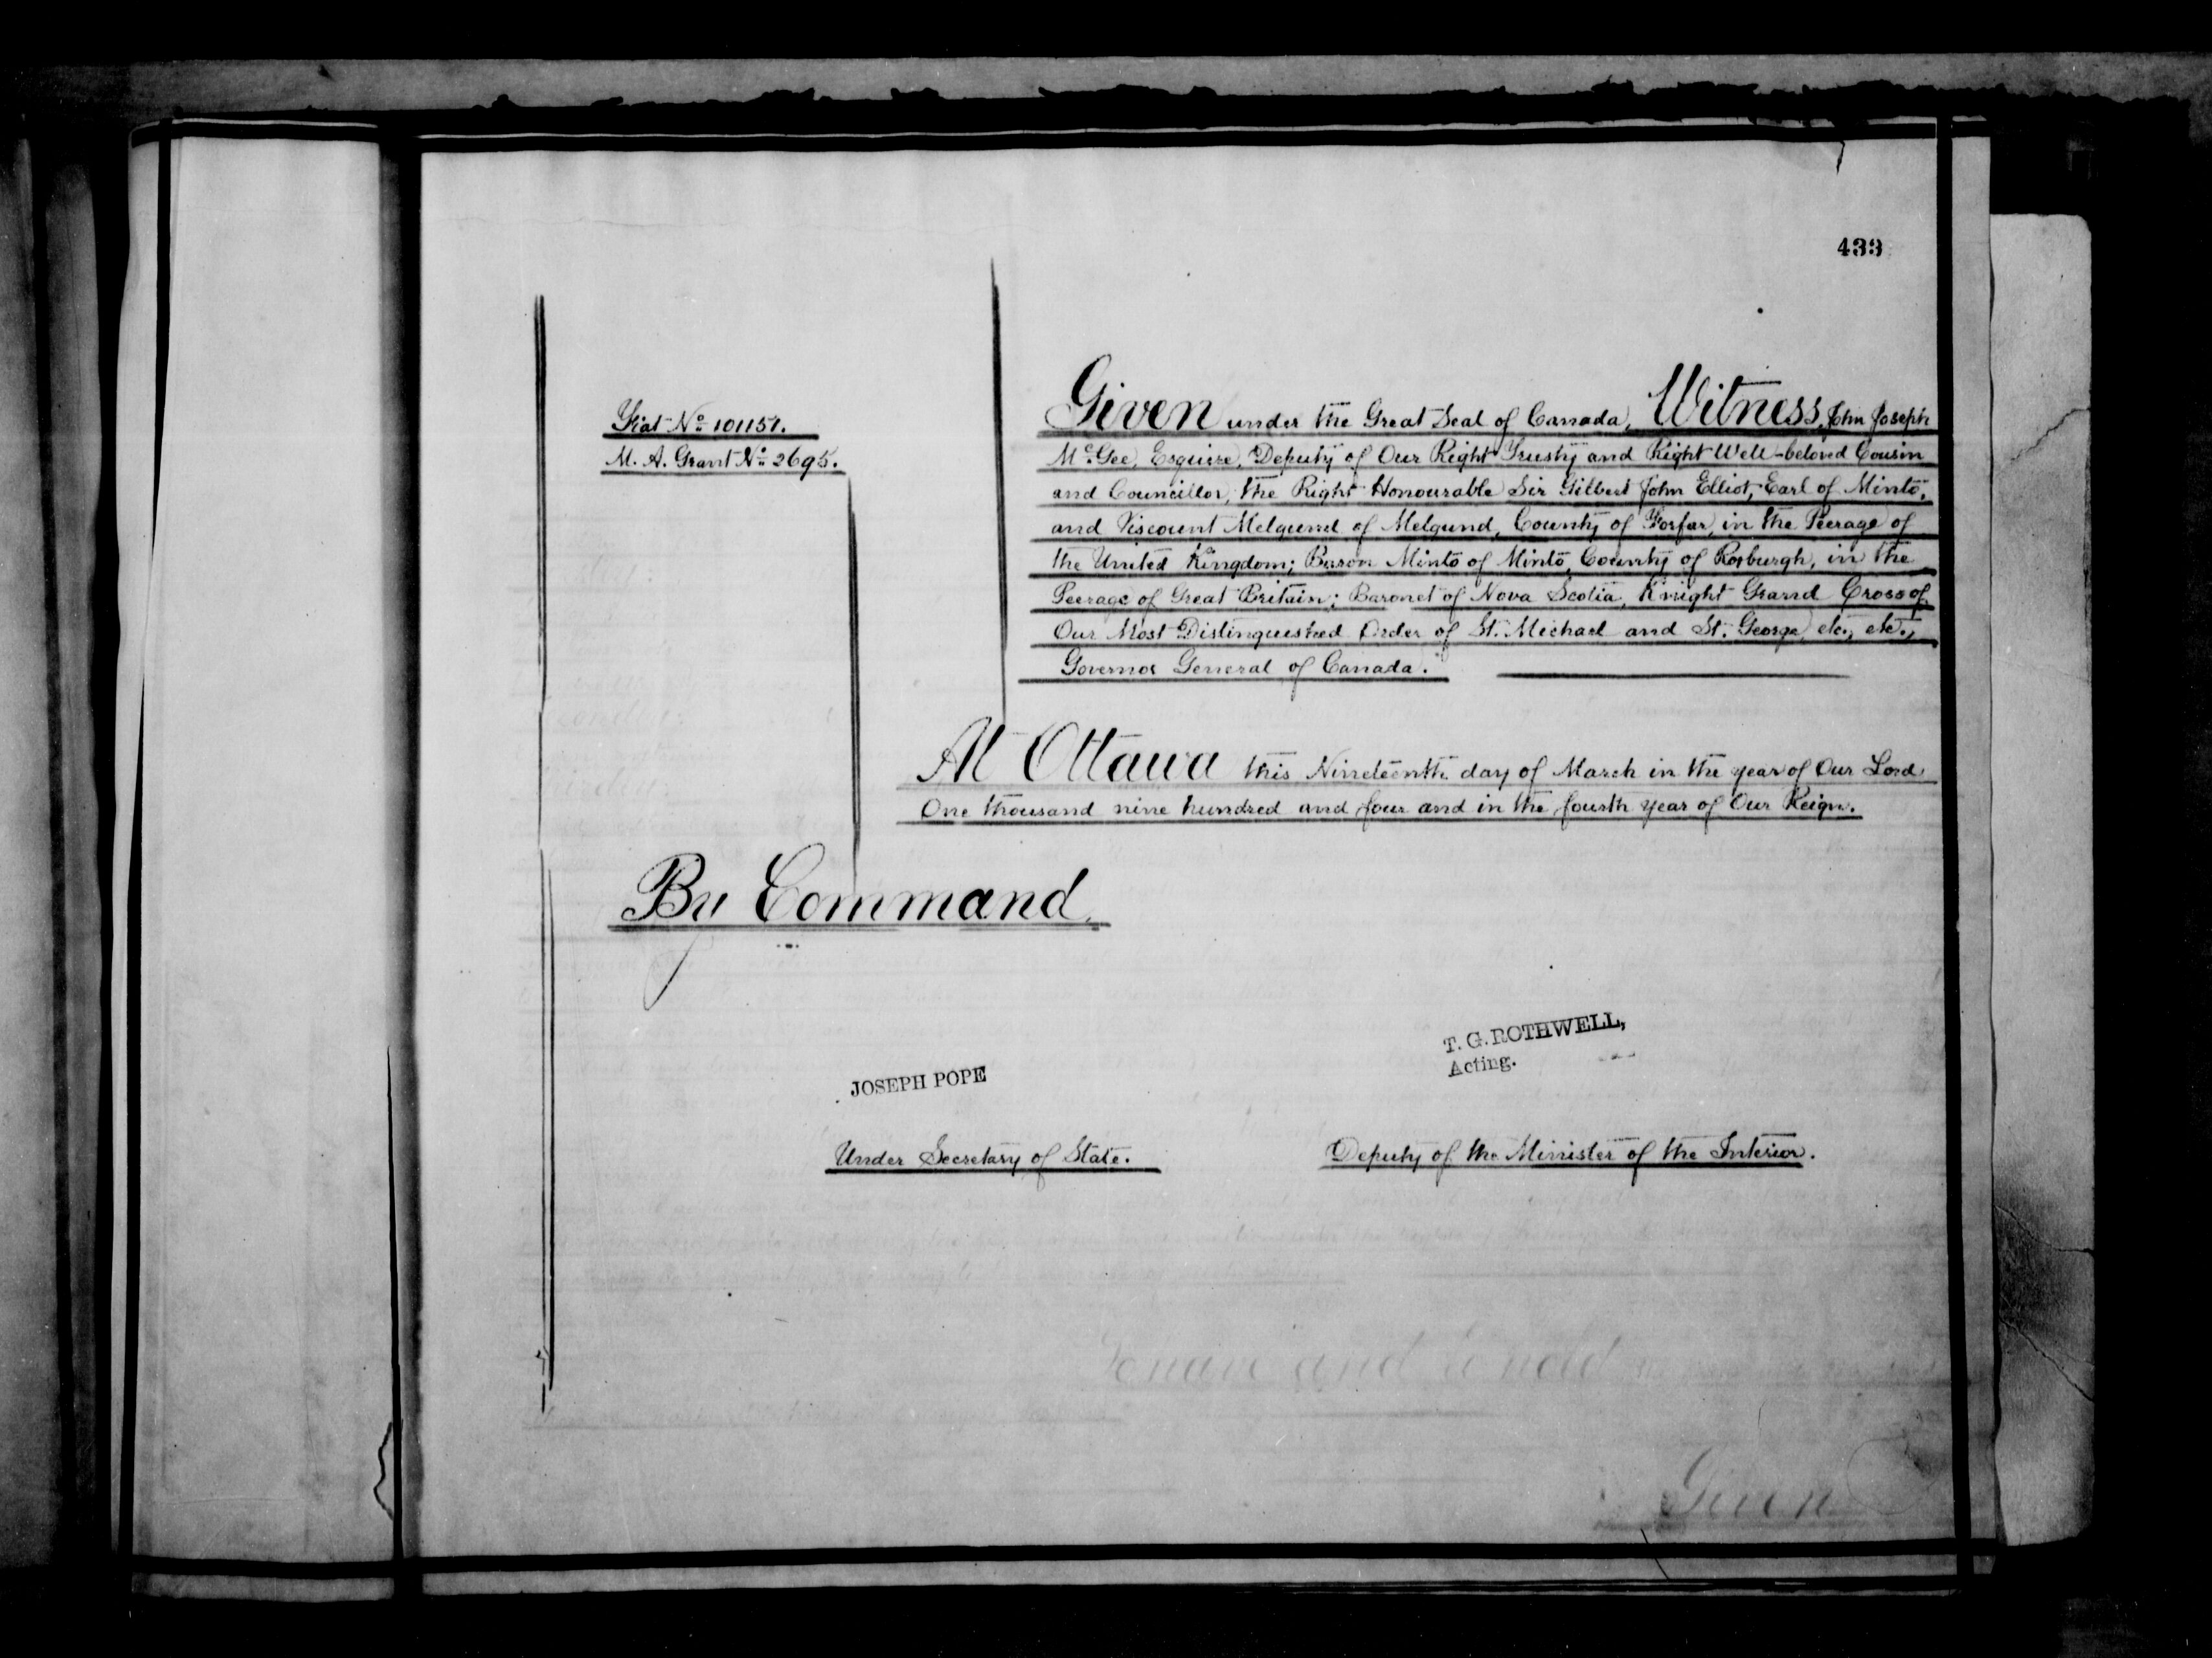 433
Fiat No. 101151.
M. A. Grant No. 2695.
Given under the Great Seal of Canada, Witness, John Joseph
McGee, Esquire, Deputy of Our Right Trusty and Right Well-beloved Cousin
and Councillor, the Right Honourable Sir Gilbert John Elliot, Earl of Minto,
and Viscount Melgund of Melgund, County of Forfar, in the Peerage of
the United Kingdom; Baron Minto of Minto, County of Roxburgh, in the
Peerage of Great Britain; Baronet of Nova Scotia, Knight Grand Cross of
Our Most Distinguished Order of St. Michael and St. George, etc., etc.,
Governor General of Canada.
At Ottawa this Nineteenth day of March in the year of Our Lord
One thousand nine hundred and four and in the fourth year of Our Reign.
By Command.
T. G. ROTHWELL,
Acting.
JOSEPH POPE
Under Secretary of State.
Deputy of the Minister of the Interior.
Given